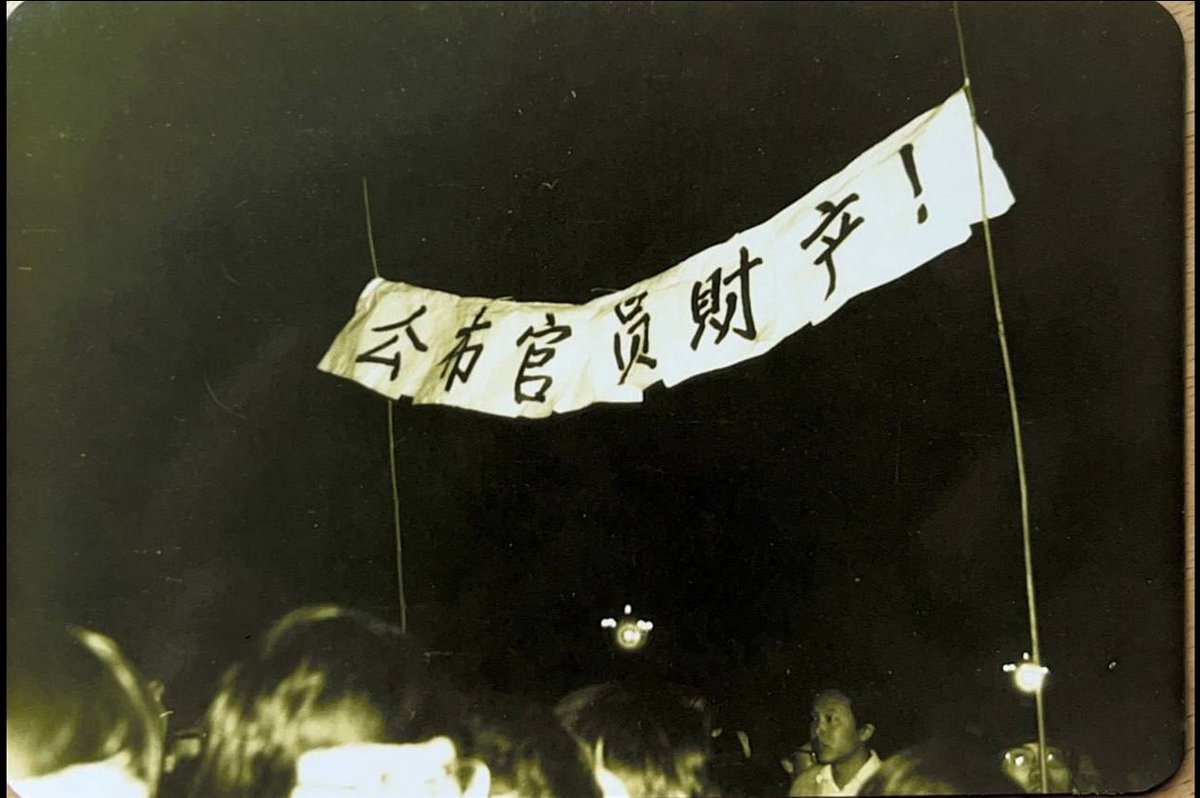 公布官员財产！